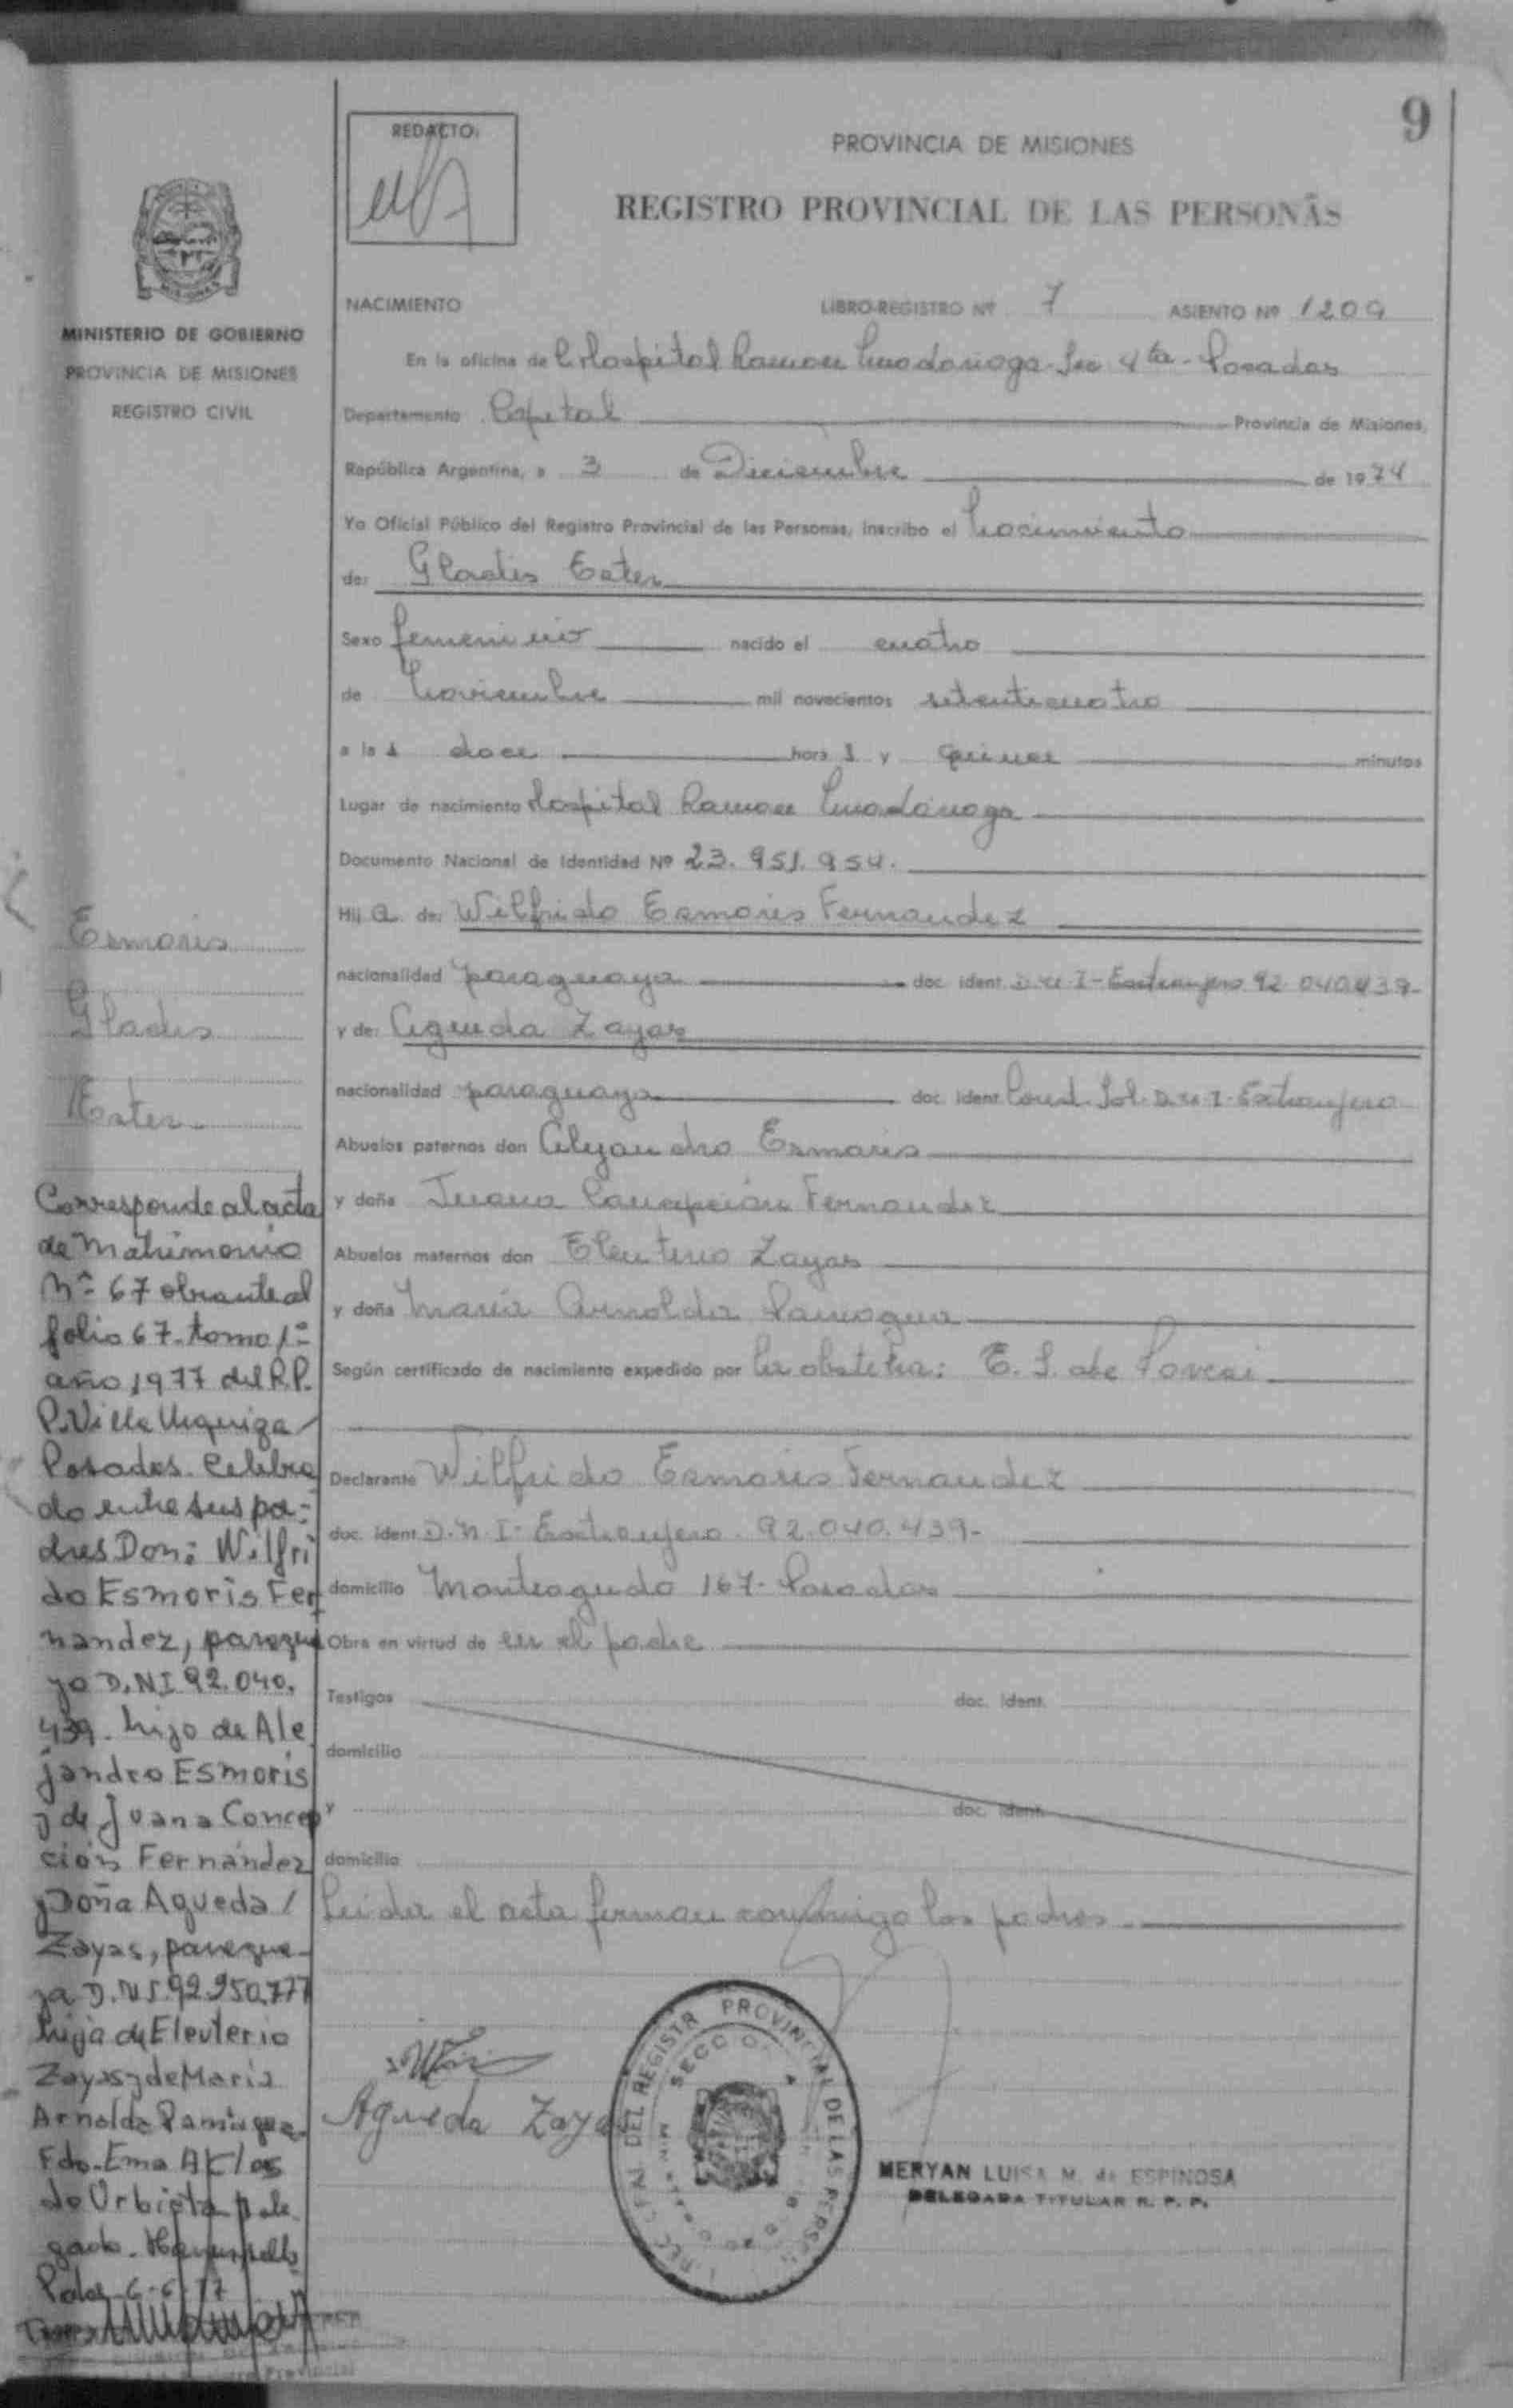 9
REDACTO:
PROVINCIA DE MISIONES
REGISTRO PROVINCIAL DE LAS PERSONAS
MINISTERIO DE GOBIERNO
PROVINCIA DE MISIONES
REGISTRO CIVIL
NACIMIENTO LIBRO-REGISTRO Nº 7 ASIENTO Nº 1209
En la oficina de Hospital Ramon Madariaga Sec 4ta - Posadas
Departamento Capital Provincia de Misiones,
República Argentina, a 3 de Diciembre de 1974
Yo Oficial Público del Registro Provincial de las Personas, inscribo el Nacimiento
de: Gladis Ester
Sexo femenino nacido el cuatro
de Noviembre mil novecientos setenticuatro
a las doce horas y quince minutos
Lugar de nacimiento Hospital Ramon Madariaga
Documento Nacional de Identidad Nº 23.951.954.
Hija de: Wilfrido Esmoris Fernandez
nacionalidad paraguaya doc. ident. D.N.I-Extranjero 92.040.439-
y de: Agueda Zayas
nacionalidad paraguaya doc. ident. Const. Sol. D.N.I-Extranjero
Abuelos paternos don Alejandro Esmoris
y doña Juana Concepción Fernandez
Abuelos maternos don Eleuterio Zayas
y doña María Arnolda Paniagua
Según certificado de nacimiento expedido por la obstetra: E. S. de
Declarante Wilfrido Esmoris Fernandez
doc. ident. D.N.I-Extranjero. 92.040.439-
domicilio Monteagudo 167- Posadas
Obra en virtud de ser el padre
Testigos doc. ident.
domicilio
y doc. ident.
domicilio
Leida el acta firman conmigo los padres
Agueda Zayas
MERYAN LUISA M. de ESPINOSA
DELEGADA TITULAR R. P. P.
Esmoris
Gladis
Ester
Corresponde al acta
de Matrimonio
Nº 67 obrante al
folio 67. tomo 1º
año 1977 del R.P.
P. Villa Urquiza
Posadas. Celebra
do entre sus pa-
dres Don: Wilfri
do Esmoris Fer
nandez, paragua
yo D.NI 92.040.
439. hijo de Ale
jandro Esmoris
y de Juana Concep
ción Fernández
y Doña Agueda /
Zayas, paragua-
ya D.NI.92.950.777
hija de Eleuterio
Zayas y de Maria
Arnolda Paniagua
Fdo. Ema
de Urbieta Dele
gado.
Pdas 6-6-77